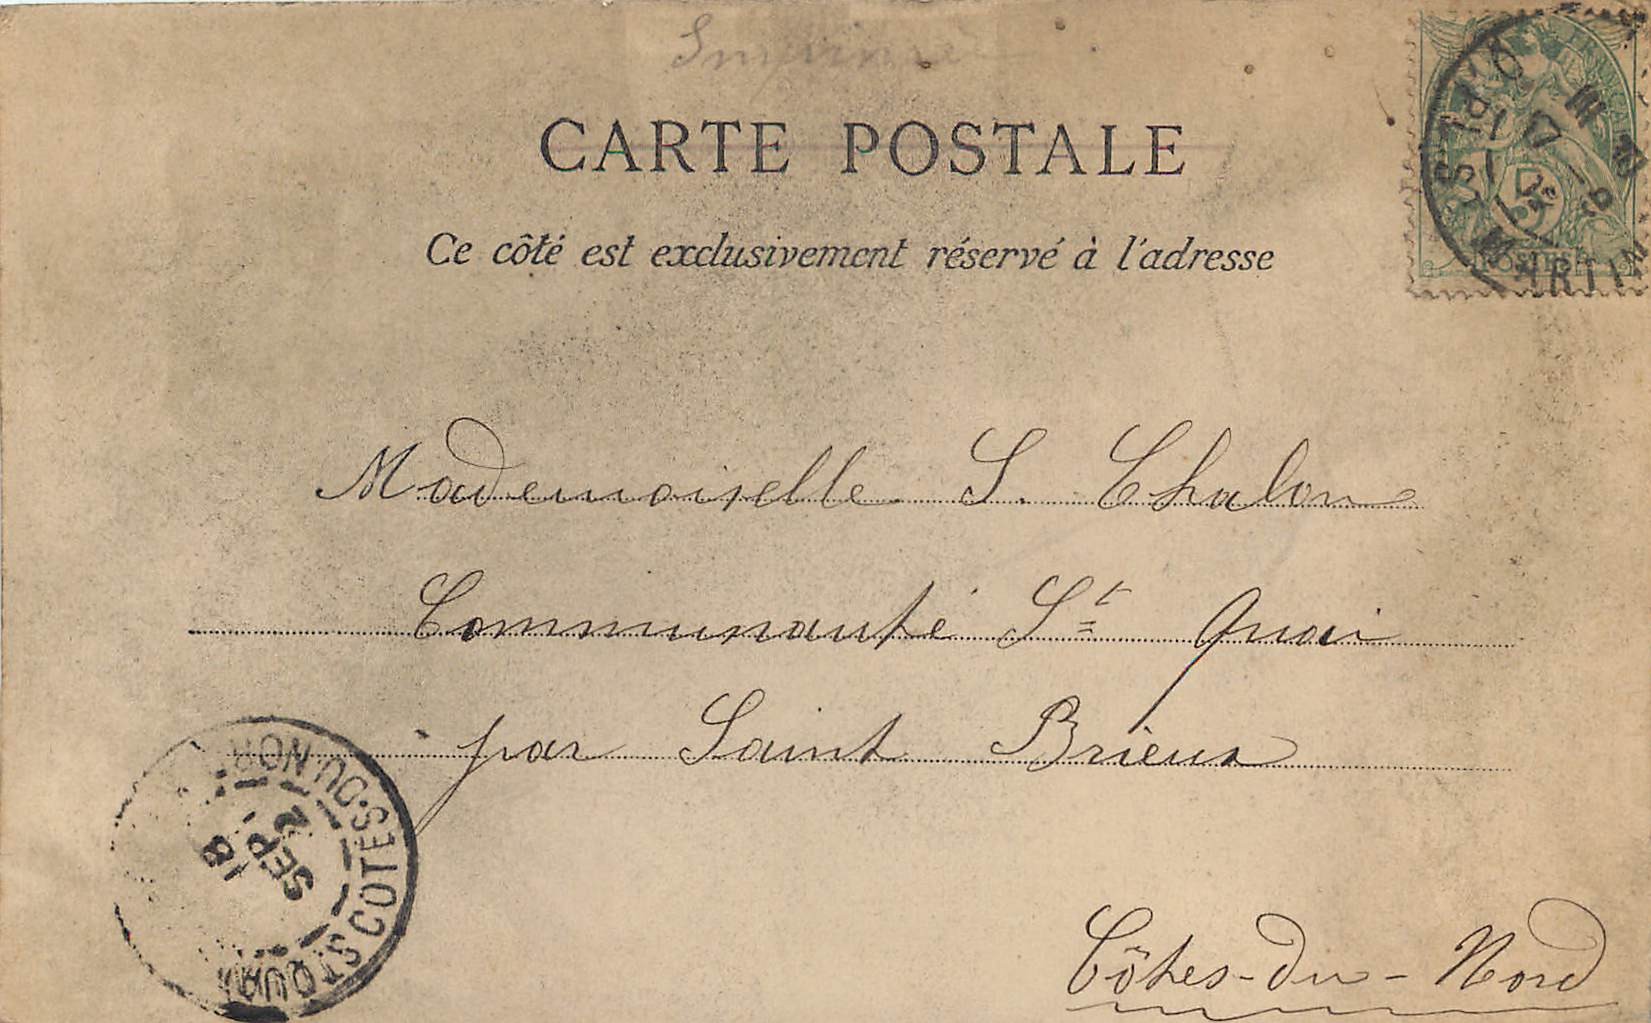 CARTE POSTALE
Ce côté est exclusivement réservé à l'adresse
Mademoiselle S. Chalon
Communauté St Quai
par Saint Brieux
Côtes-du-Nord
ST QUAI COTES-DU NOR
SEP 2
18